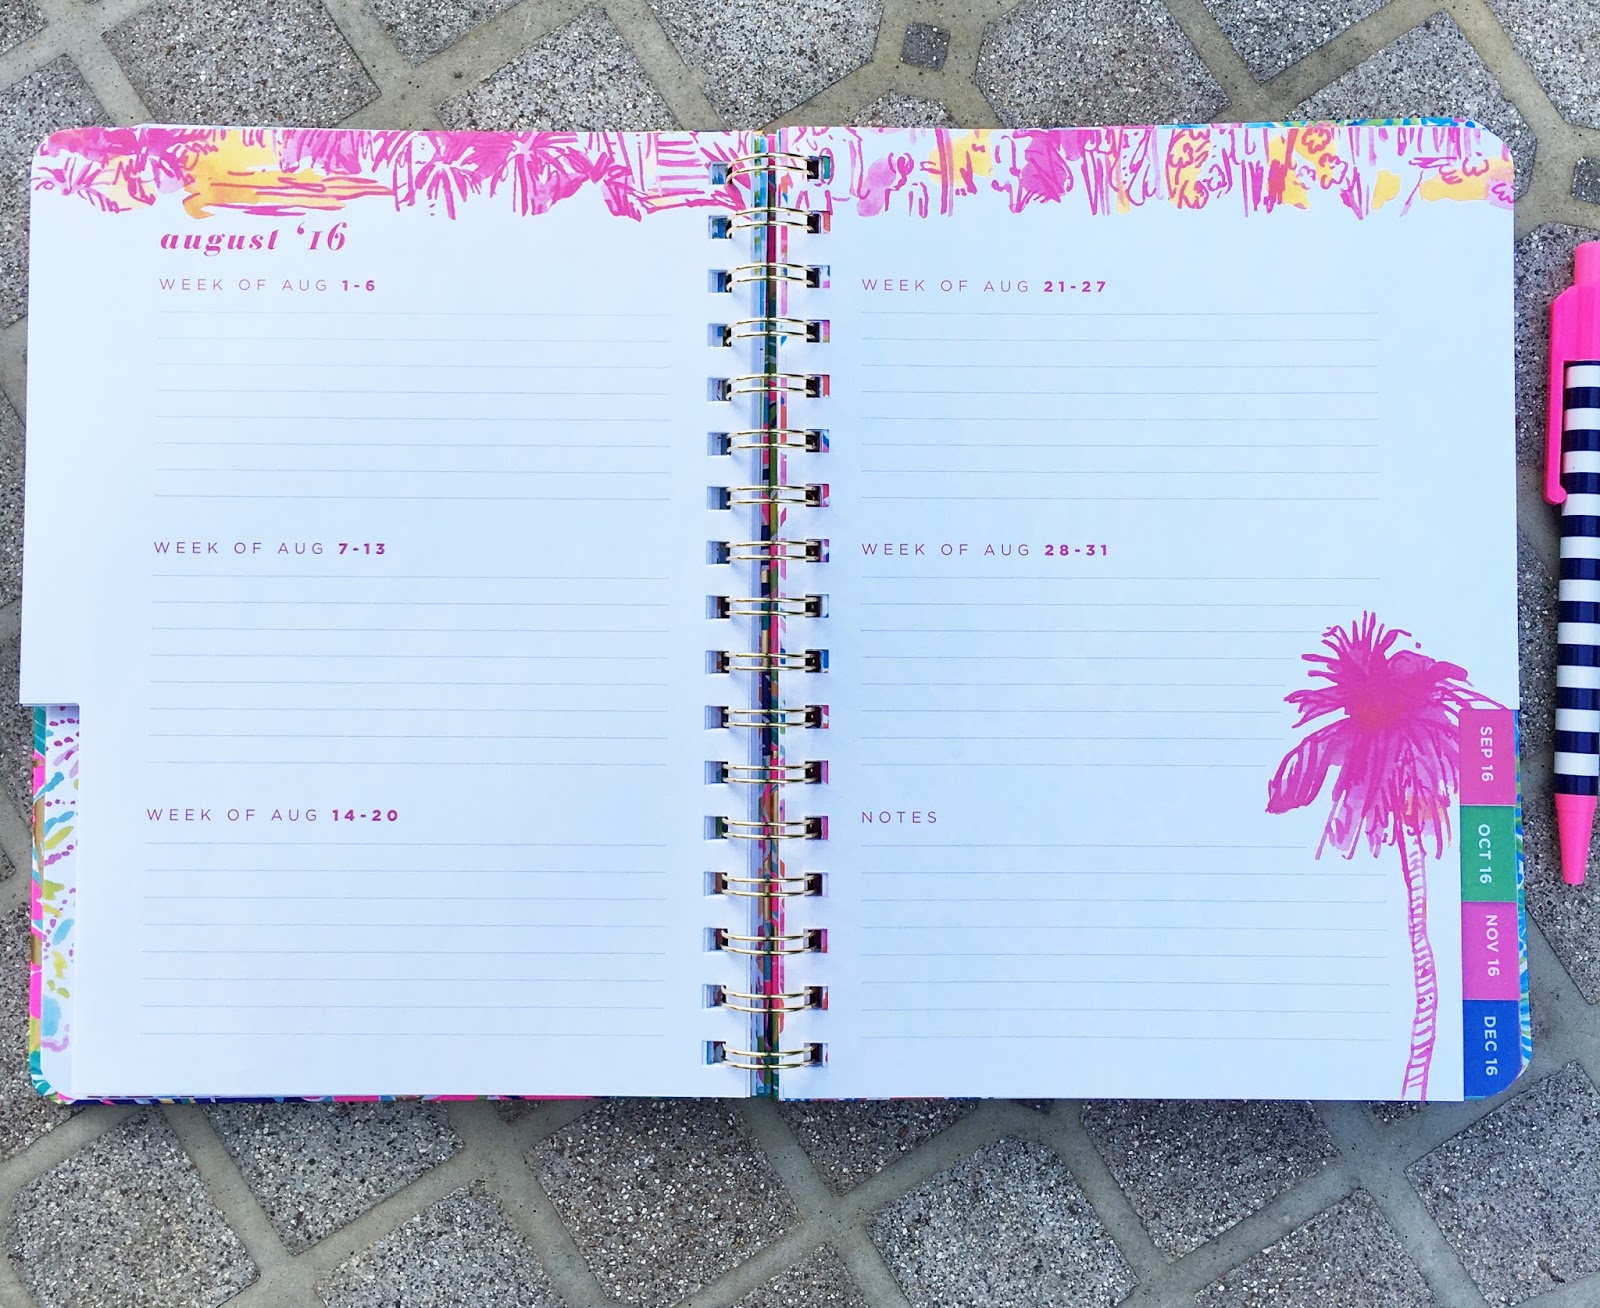 august ‘16
WEEK OF AUG 1-6
WEEK OF AUG 7-13
WEEK OF AUG 14-20
WEEK OF AUG 21-27
WEEK OF AUG 28-31
NOTES
SEP 16
OCT 16
NOV 16
DEC 16